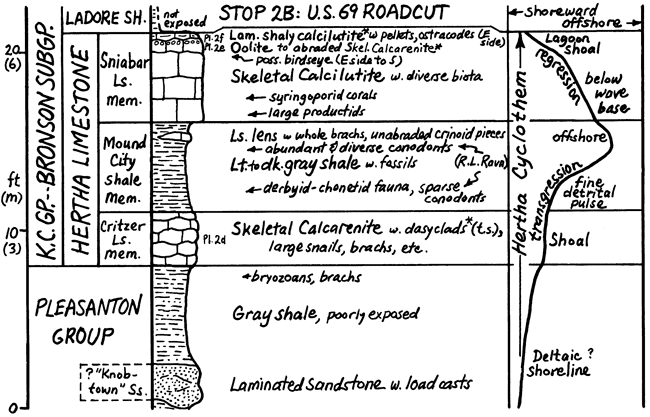 LADORE SH.
not exposed
STOP 2B: U.S. 69 ROADCUT
shoreward
offshore
K.C. GP. -- BRONSON SUBGP.
HERTHA LIMESTONE
20
(6)
ft
(m)
10
(3)
0
Sniabar
Ls.
mem.
Pl. 2f
Pl. 2e
Lam. shaly calcilutite* w pellets, ostracodes (E side)
Oolite to abraded Skel. Calcarenite*
poss. birdseye (E side to S)
Skeletal Calcilutite w. diverse biota
syringoporid corals
large productids
Mound
City
Shale
Mem.
Ls. lens w whole brachs, unabraded crinoid pieces
abundant & diverse conodonts
Lt. to dk. gray shale w. fossils
(R.L. Rava)
derbyid-chonetid fauna, sparse
conodonts
Critzer
Ls.
mem.
Pl. 2d
Skeletal Calcarenite w. dasyclads* (t.s.),
large snails, brachs, etc.
PLEASANTON
GROUP
bryozoans, brachs
Gray shale, poorly exposed
? "Knob-
town" Ss.
Laminated Sandstone w. load casts
Hertha Cyclothem
Lagoon
shoal
regression
below
wave
base
offshore
transgression
fine
detrital
pulse
Shoal
Deltaic ?
shoreline